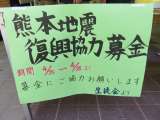 熊本地震
復興協力募金
期間 4/21 〜 4/28
募金にご協力お願いします
生徒会より